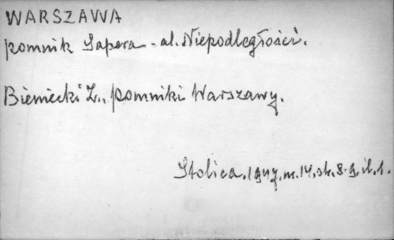 WARSZAWA
pomnik Sapera - al. Niepodległości.
Bieniecki Z., pomniki Warszawy.
Stolica. 1947. nr. 14. str. 8-9. il. 1.